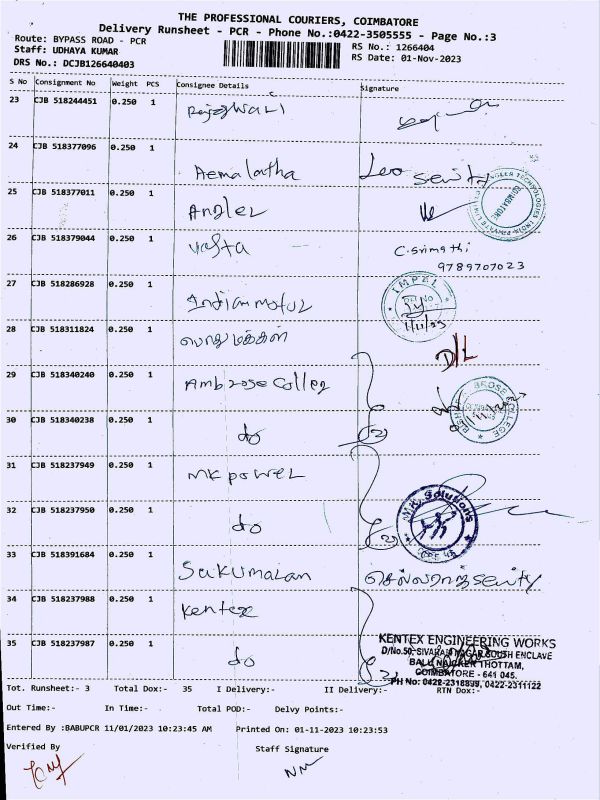 THE PROFESSIONAL COURIERS, COIMBATORE
Delivery Runsheet - PCR - Phone No.:0422-3505555 - Page No.:3
Route: BYPASS ROAD - PCR
RS No.: 1266404
Staff: UDHAYA KUMAR
RS Date: 01-Nov-2023
DRS No.: DCJB126640403
S No Consignment No Weight PCS Consignee Details Signature
23 CJB 518244451 0.250 1 Rajeswari
24 CJB 518377096 0.250 1 Hemalatha
25 CJB 518377011 0.250 1 Angler
ANGLER TECHNOLOGIES INDIA PRIVATE LIMITED COIMBATORE
26 CJB 518379044 0.250 1 C.srimathi
9789707023
27 CJB 518286928 0.250 1 Indian motor
IMPEL
1/11/23
28 CJB 518311824 0.250 1 D/L
29 CJB 518340240 0.250 1 Ambrose Colleg
COLLEGE
30 CJB 518340238 0.250 1 do
31 CJB 518237949 0.250 1 MK power
32 CJB 518237950 0.250 1 do
Solutions
33 CJB 518391684 0.250 1 Sukumaran
34 CJB 518237988 0.250 1 Kentex
35 CJB 518237987 0.250 1 do
KENTEX ENGINEERING WORKS
D/No.50, SIVARAJ NAGAR SOUTH ENCLAVE
BALU NAICKER THOTTAM,
COIMBATORE - 641 045.
PH No: 0422-2318899, 0422-2311122
Tot. Runsheet:- 3 Total Dox:- 35 I Delivery:- II Delivery:- RTN Dox:-
Out Time:- In Time:- Total POD:- Delvy Points:-
Entered By :BABUPCR 11/01/2023 10:23:45 AM Printed On: 01-11-2023 10:23:53
Verified By Staff Signature